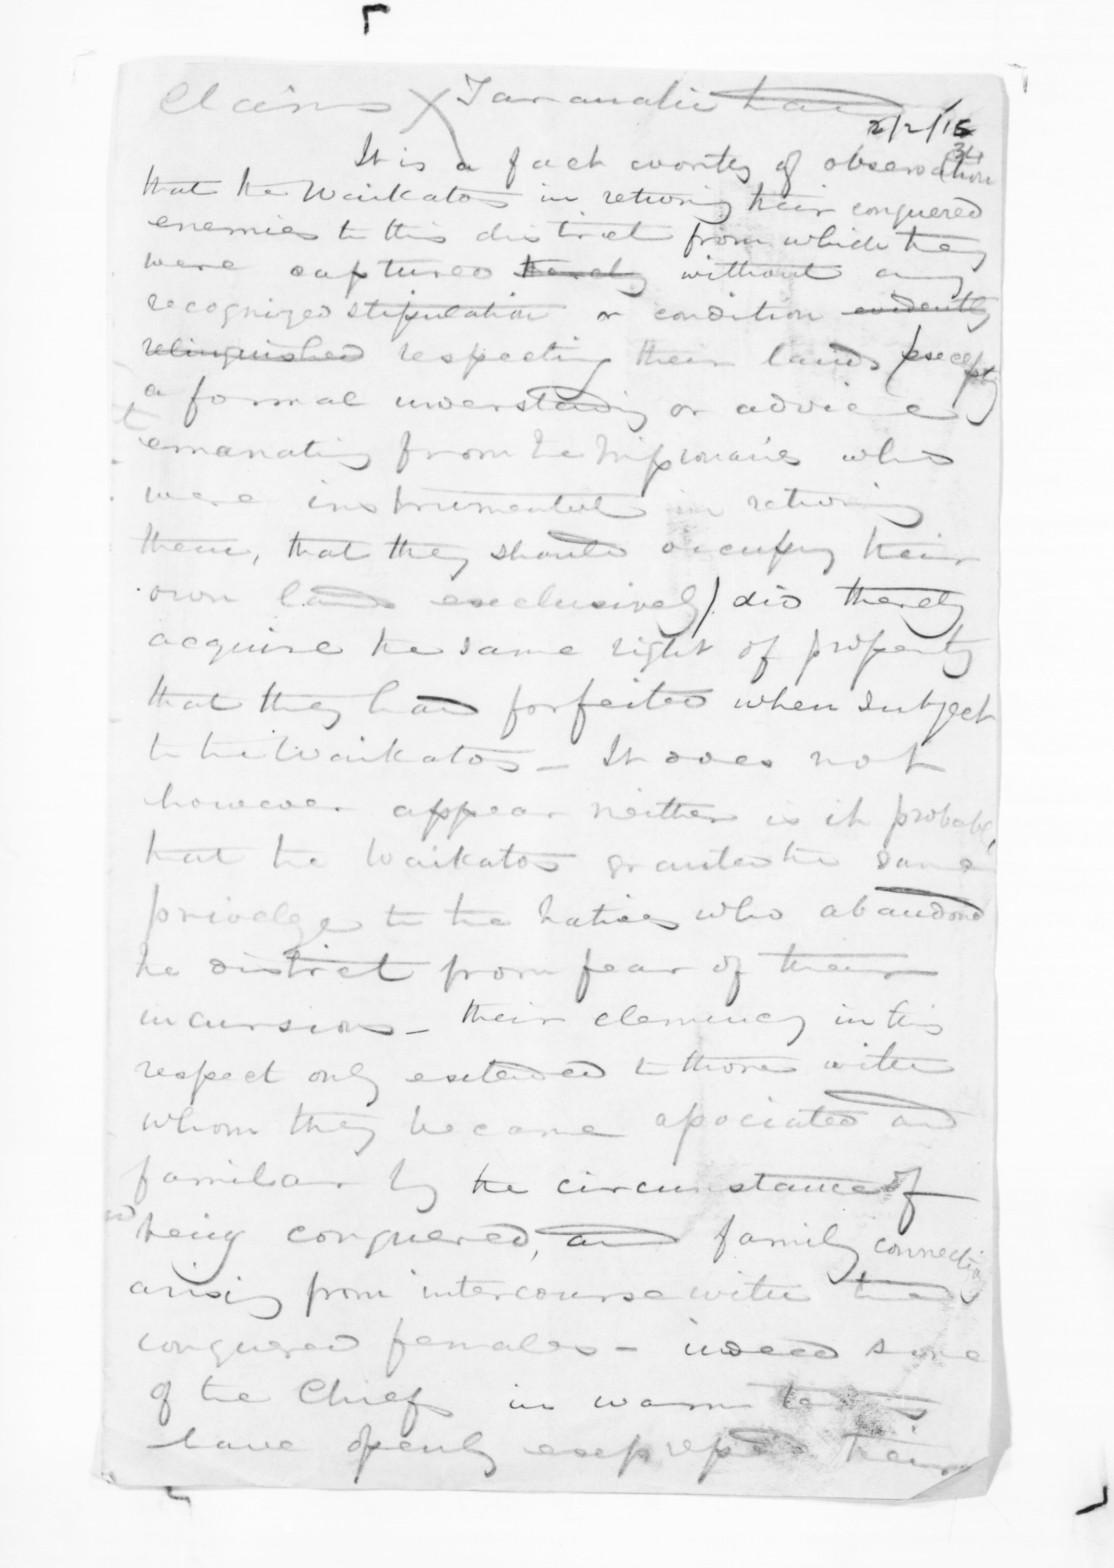 Claims X Taranaki Land
2/2/15
34
It is a fact worthy of observation
that the Waikatos in returning their conquered
enemies to this district from which they
were captured thereby without any
recognized stipulation or condition evidently
relinquished respecting their lands (except
a formal understanding or advice
emanating from the Missionaries who
were instrumental in returning
them, that they should occupy their
own lands exclusively) did thereby
acquire the same right of property
that they had forfeited when subject
to the Waikatos – It does not
however appear neither is it probable,
that the Waikatos granted the same
privelge to the Natives who abandoned
the district from fear of their
incursions – their clemency in this
respect only extended to those with
whom they became associated and
familiar by the circumstance of
being conquered, and family connection
arising from intercourse with the
conquered females – indeed some
of the Chiefs in warm terms
have openly expressed their